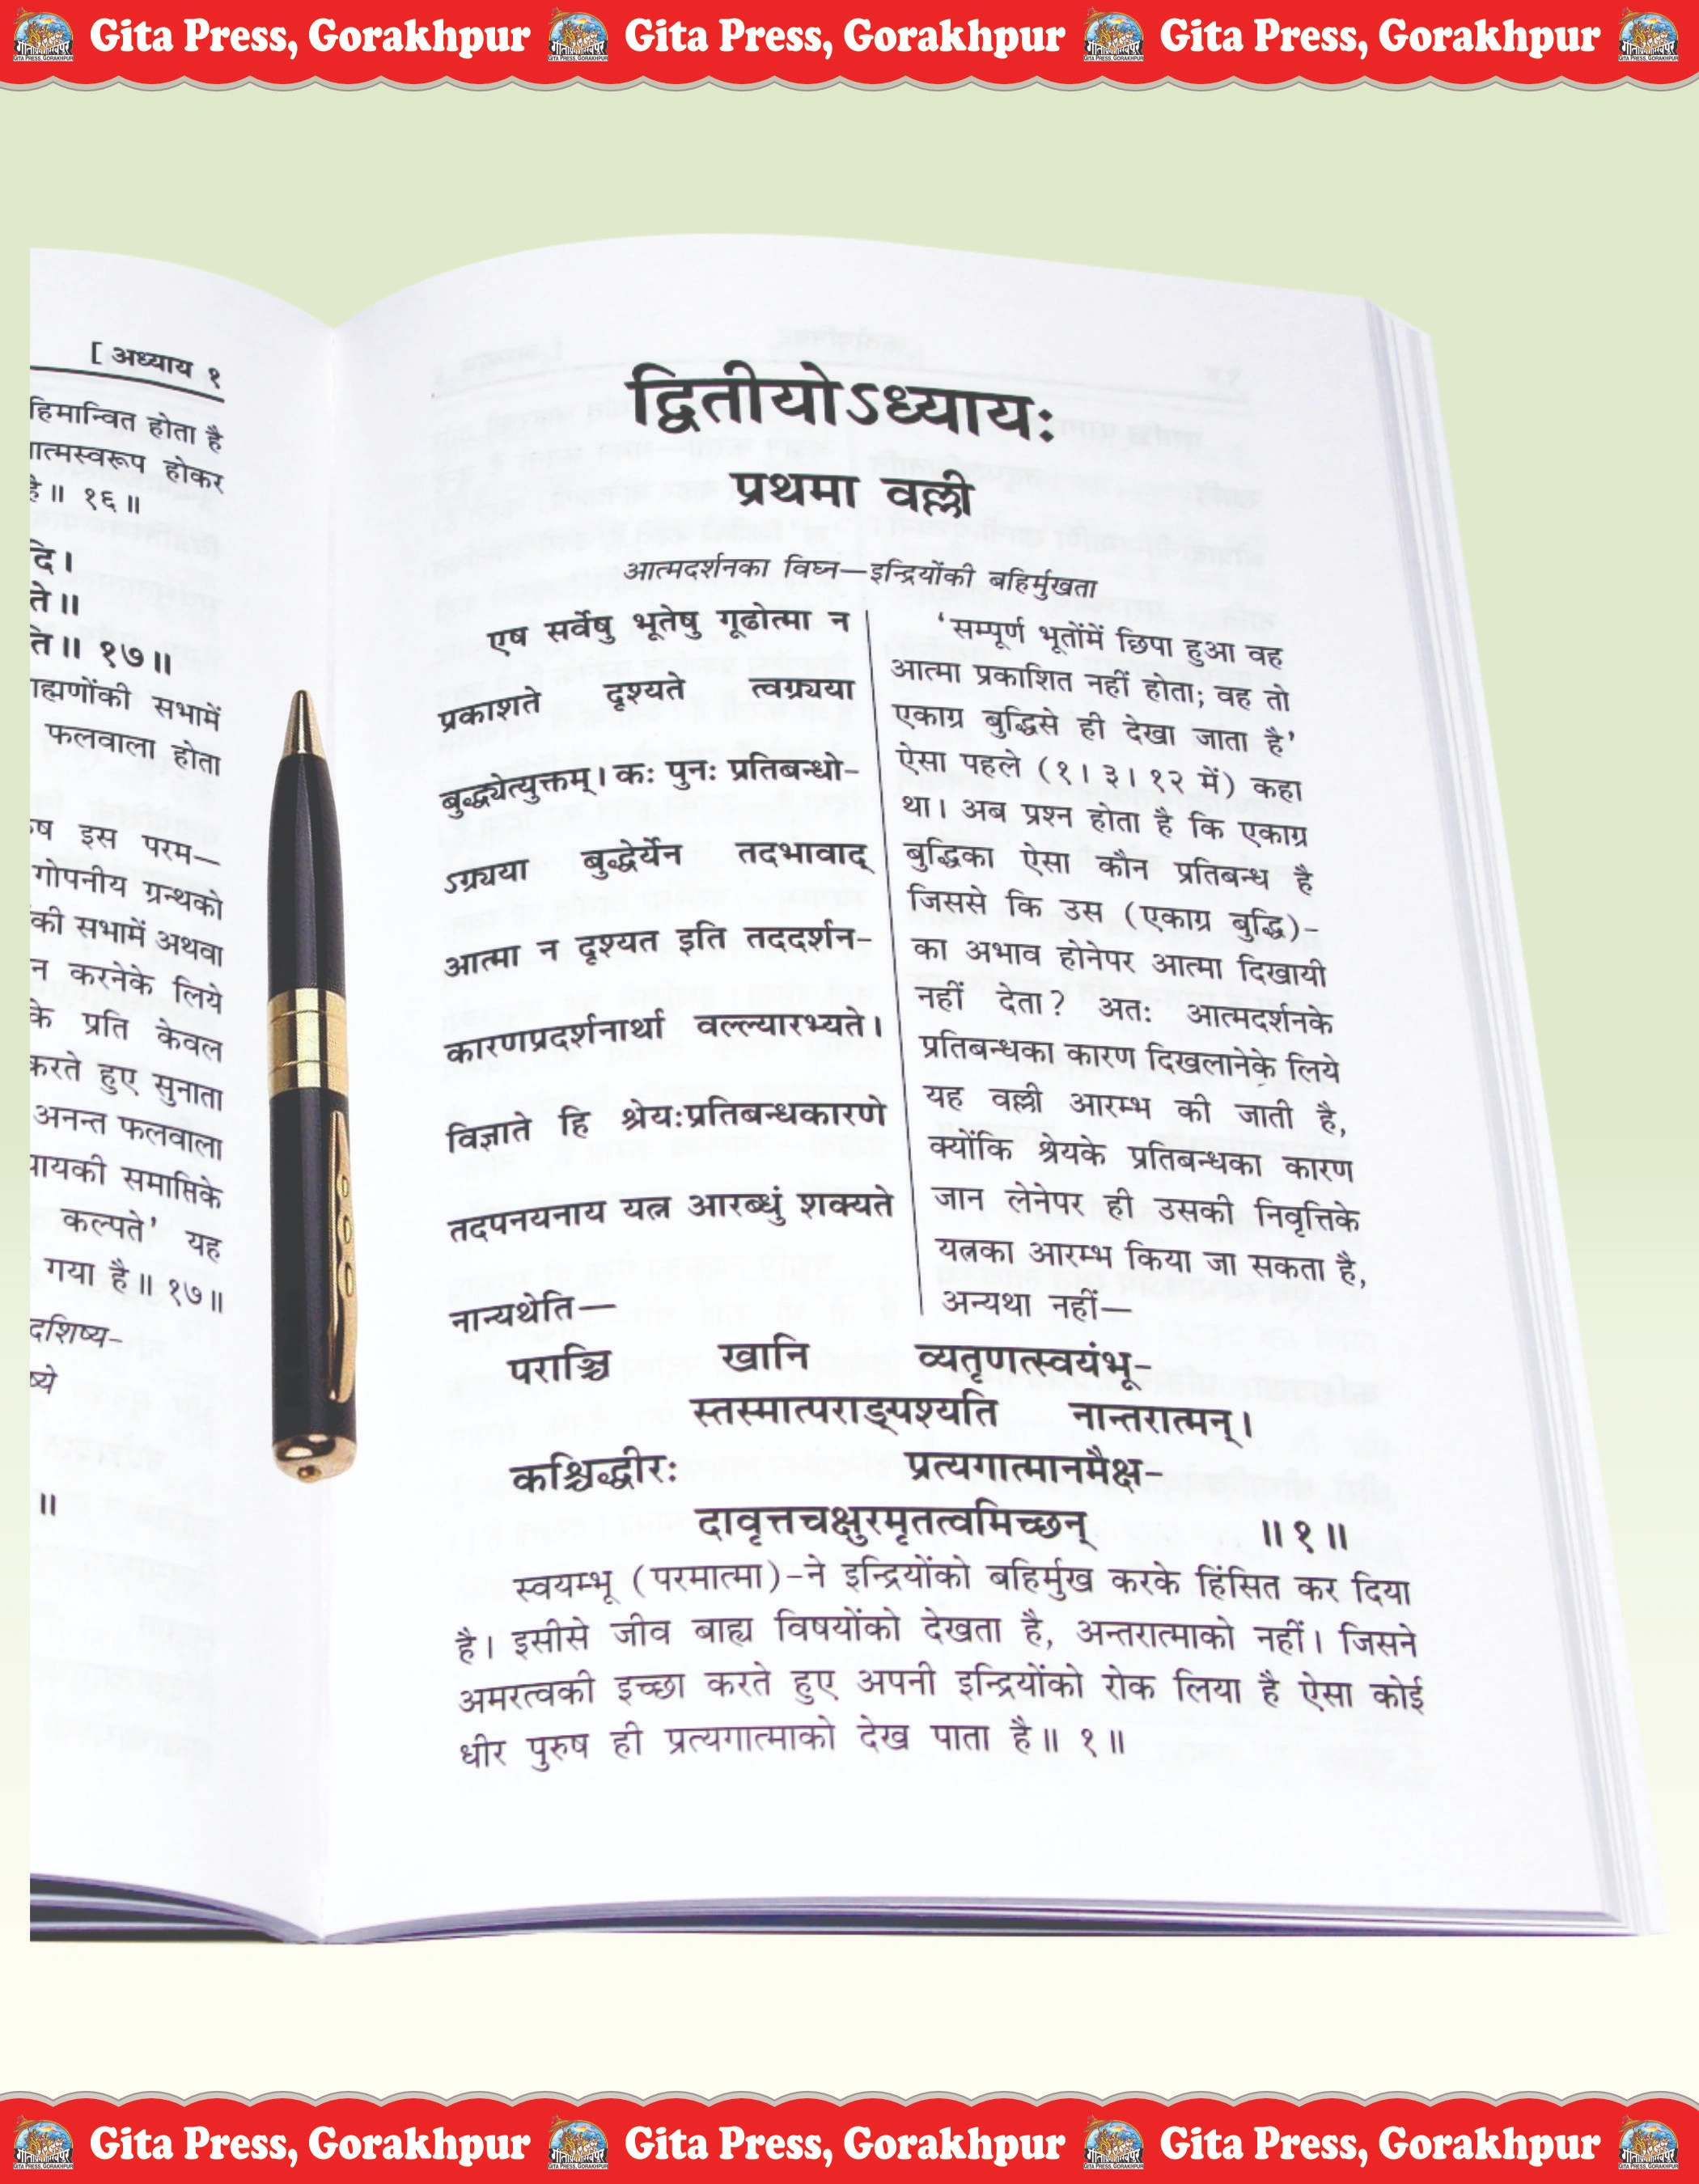 Gita Press, Gorakhpur Gita Press, Gorakhpur Gita Press, Gorakhpur
[ अध्याय १
हिमान्वित होता है
ात्मस्वरूप होकर
है॥ १६॥
दि।
ते॥
ति॥ १७॥
ाह्मणोंकी सभामें
फलवाला होता
ष इस परम—
गोपनीय ग्रन्थको
की सभामें अथवा
न करनेके लिये
के प्रति केवल
करते हुए सुनाता
अनन्त फलवाला
ायकी समाप्तिके
कल्पते' यह
गया है॥ १७॥
दशिष्य-
ष्ये
॥
द्वितीयोऽध्यायः
प्रथमा वल्ली
आत्मदर्शनका विघ्न—इन्द्रियोंकी बहिर्मुखता
एष सर्वेषु भूतेषु गूढोत्मा न
प्रकाशते दृश्यते त्वग्र्यया
बुद्ध्येत्युक्तम्। कः पुनः प्रतिबन्धो-
ऽग्र्यया बुद्धेर्येन तदभावाद्
आत्मा न दृश्यत इति तददर्शन-
कारणप्रदर्शनार्था वल्ल्यारभ्यते।
विज्ञाते हि श्रेयःप्रतिबन्धकारणे
तदपनयनाय यत्न आरब्धुं शक्यते
नान्यथेति—
'सम्पूर्ण भूतोंमें छिपा हुआ वह
आत्मा प्रकाशित नहीं होता; वह तो
एकाग्र बुद्धिसे ही देखा जाता है'
ऐसा पहले (१। ३। १२ में) कहा
था। अब प्रश्न होता है कि एकाग्र
बुद्धिका ऐसा कौन प्रतिबन्ध है
जिससे कि उस (एकाग्र बुद्धि)-
का अभाव होनेपर आत्मा दिखायी
नहीं देता? अतः आत्मदर्शनके
प्रतिबन्धका कारण दिखलानेके लिये
यह वल्ली आरम्भ की जाती है,
क्योंकि श्रेयके प्रतिबन्धका कारण
जान लेनेपर ही उसकी निवृत्तिके
यत्नका आरम्भ किया जा सकता है,
अन्यथा नहीं—
पराञ्चि खानि व्यतृणत्स्वयंभू-
स्तस्मात्पराङ्पश्यति नान्तरात्मन्।
कश्चिद्धीरः प्रत्यगात्मानमैक्ष-
दावृत्तचक्षुरमृतत्वमिच्छन् ॥ १ ॥
स्वयम्भू (परमात्मा)-ने इन्द्रियोंको बहिर्मुख करके हिंसित कर दिया
है। इसीसे जीव बाह्य विषयोंको देखता है, अन्तरात्माको नहीं। जिसने
अमरत्वकी इच्छा करते हुए अपनी इन्द्रियोंको रोक लिया है ऐसा कोई
धीर पुरुष ही प्रत्यगात्माको देख पाता है॥ १॥
Gita Press, Gorakhpur Gita Press, Gorakhpur Gita Press, Gorakhpur